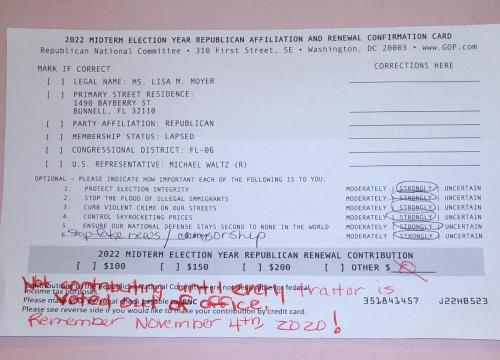 2022 MIDTERM ELECTION YEAR REPUBLICAN AFFILIATION AND RENEWAL CONFIRMATION CARD
Republican National Committee • 310 First Street, SE • Washington, DC 20003 • www.GOP.com
MARK IF CORRECT CORRECTIONS HERE
[ ] LEGAL NAME: MS. LISA M. MOYER
[ ] PRIMARY STREET RESIDENCE:
1490 BAYBERRY ST
BUNNELL, FL 32110
[ ] PARTY AFFILIATION: REPUBLICAN
[ ] MEMBERSHIP STATUS: LAPSED
[ ] CONGRESSIONAL DISTRICT: FL-06
[ ] U.S. REPRESENTATIVE: MICHAEL WALTZ (R)
OPTIONAL - PLEASE INDICATE HOW IMPORTANT EACH OF THE FOLLOWING IS TO YOU:
1. PROTECT ELECTION INTEGRITY MODERATELY | STRONGLY | UNCERTAIN
2. STOP THE FLOOD OF ILLEGAL IMMIGRANTS MODERATELY | STRONGLY | UNCERTAIN
3. CURB VIOLENT CRIME ON OUR STREETS MODERATELY | STRONGLY | UNCERTAIN
4. CONTROL SKYROCKETING PRICES MODERATELY | STRONGLY | UNCERTAIN
5. ENSURE OUR NATIONAL DEFENSE STAYS SECOND TO NONE IN THE WORLD MODERATELY | STRONGLY | UNCERTAIN
6. Stop fake news / censorship MODERATELY | STRONGLY | UNCERTAIN
2022 MIDTERM ELECTION YEAR REPUBLICAN RENEWAL CONTRIBUTION
[ ] $100 [ ] $150 [ ] $200 [ ] OTHER $
Not contributing until every traitor is
Contributions to the Republican National Committee are not deductible for federal
income tax purposes.
voted out of office.
Please make RNC 351841457 J22HB523
Please see reverse side if you would like to make your contribution by credit card.
Remember November 4th 2020!